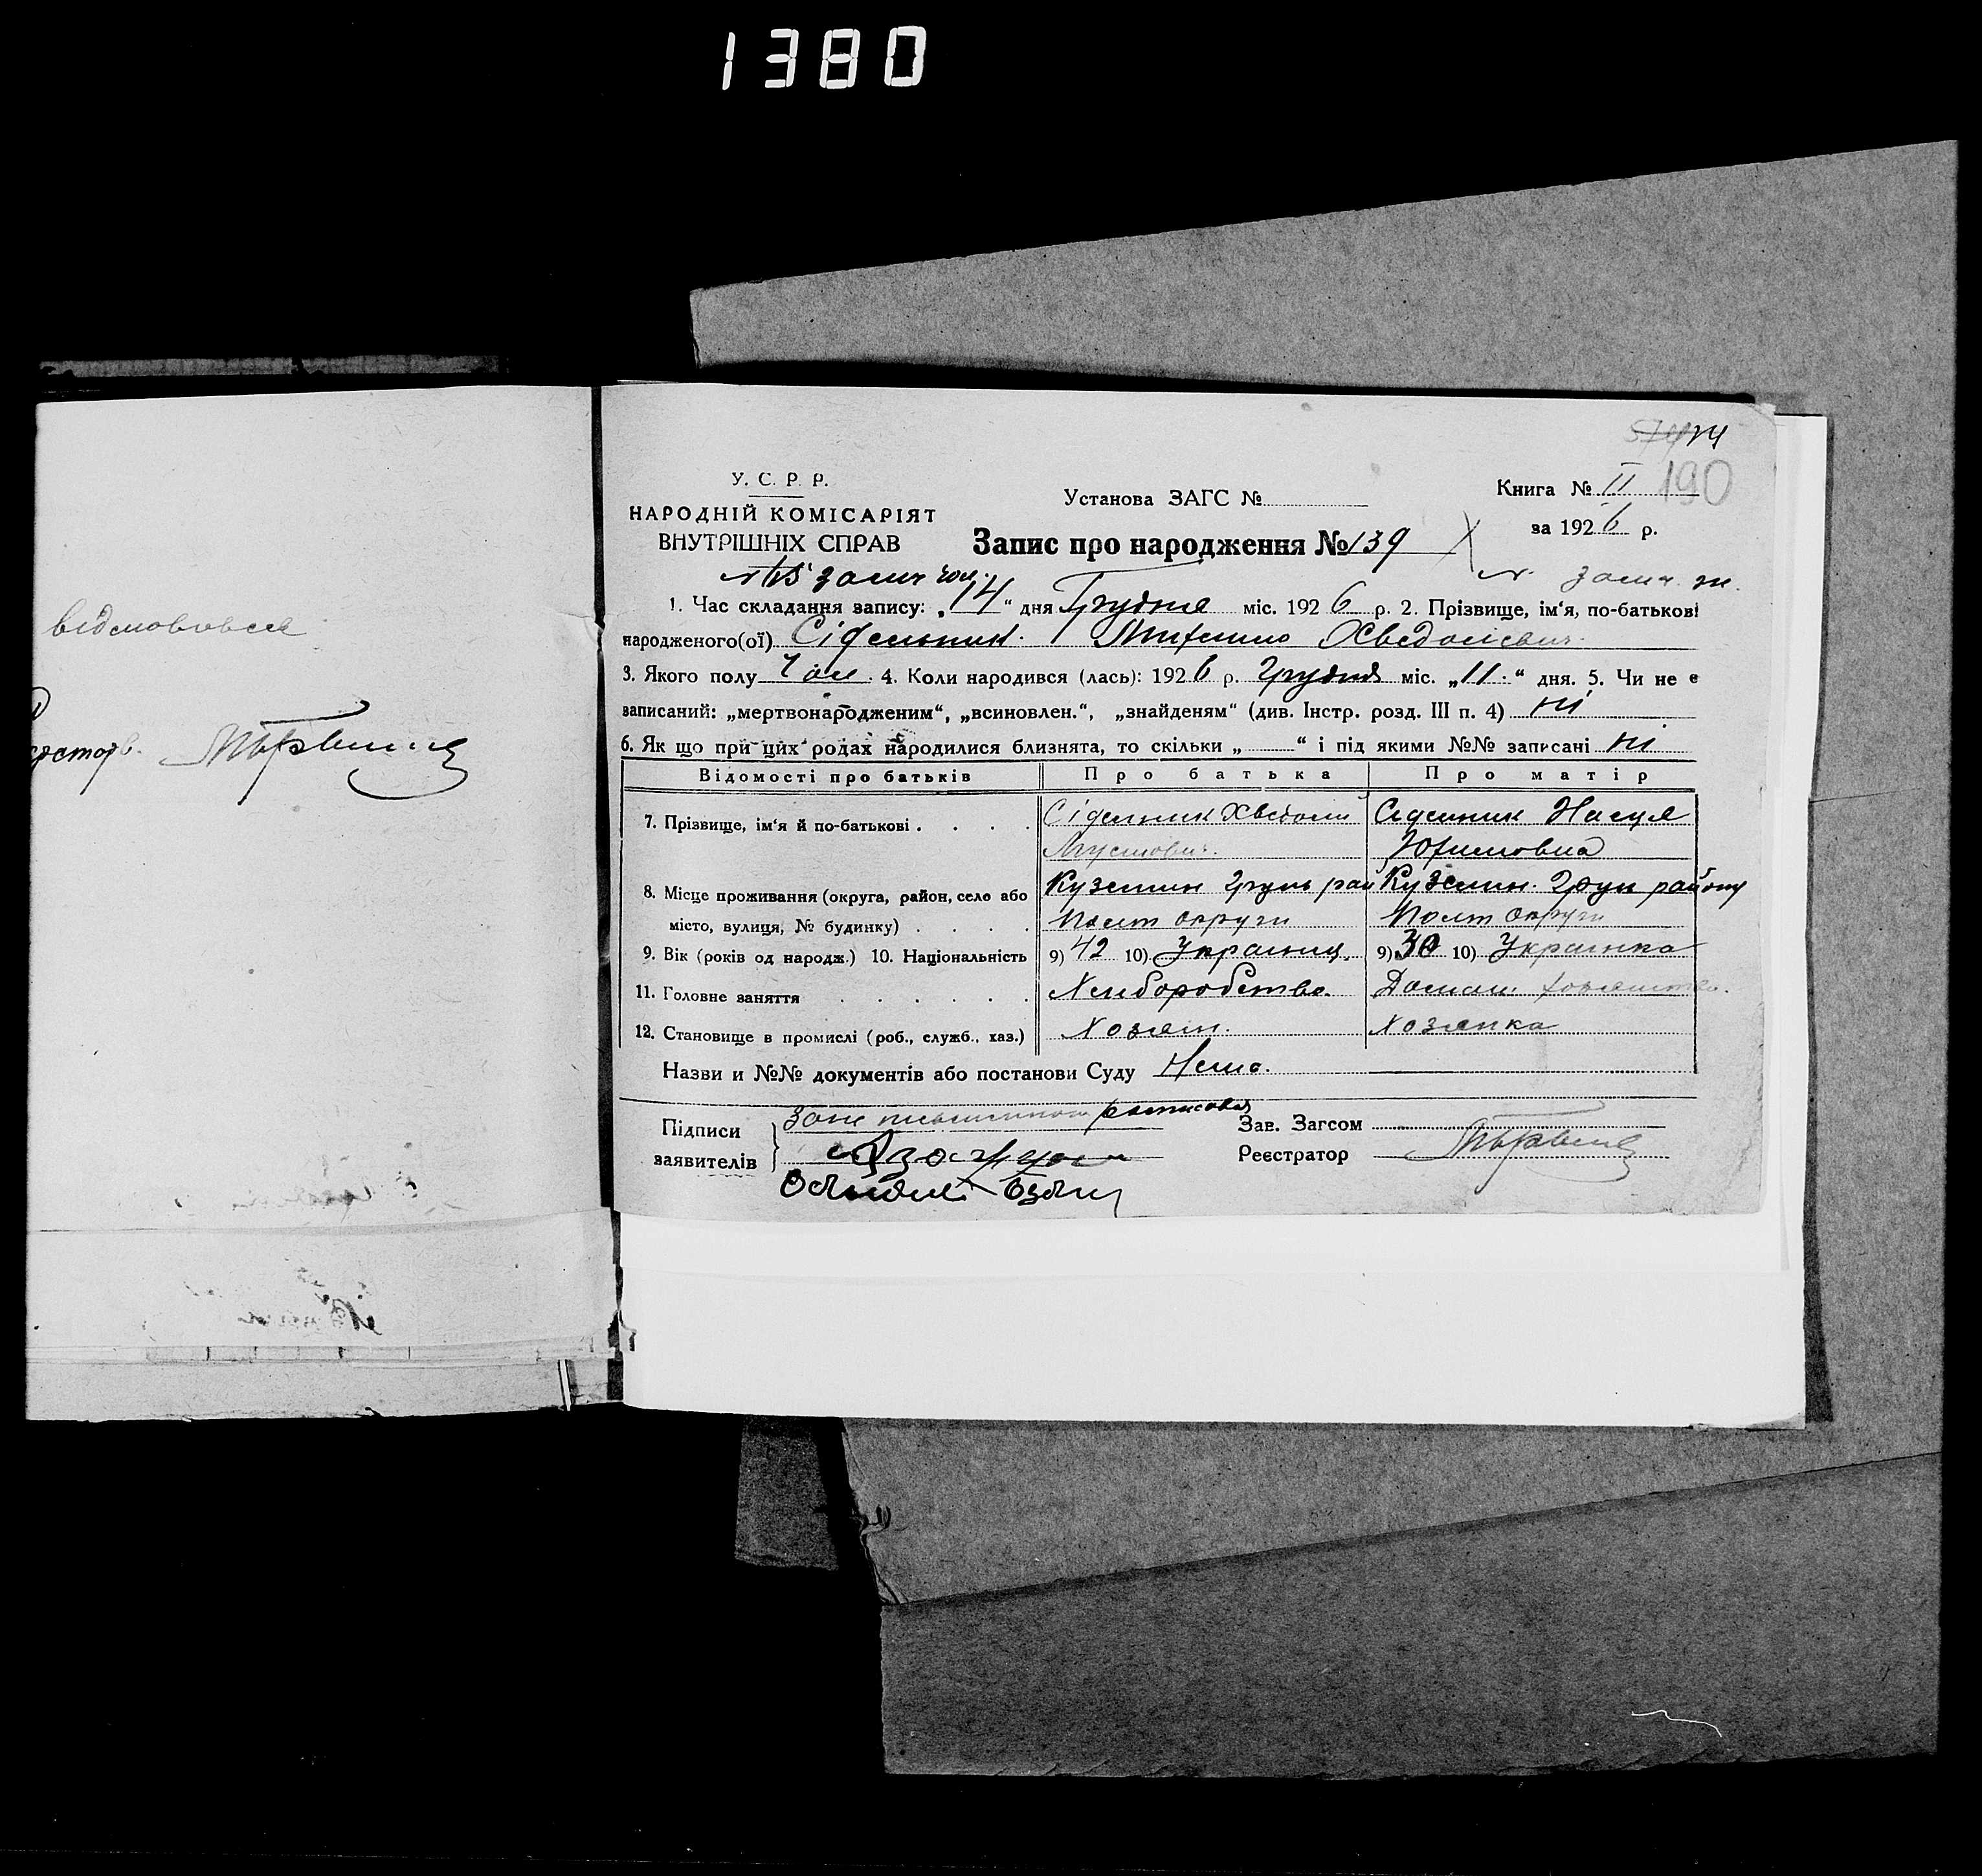 1380
відмовився
190
У. С. Р. Р.
НАРОДНІЙ КОМІСАРІЯТ
ВНУТРІШНІХ СПРАВ
Установа ЗАГС №
Книга № II
за 1926 р.
Запис про народження № 139
1. Час складання запису: „14“ дня Грудня міс. 1926 р. 2. Прізвище, ім‘я, по-батькові
народженого(ої) Сідельник
3. Якого полу Чол. 4. Коли народився (лась): 1926 р. Грудня міс. „11.“ дня. 5. Чи не є
записаний: „мертвонародженим“, „всиновлен.“, „знайденям“ (див. Інстр. розд. III п. 4) ні
6. Як що при цих родах народилися близнята, то скільки „ “ і під якими №№ записані ні
Відомості про батьків Про батька Про матір
7. Прізвище, ім‘я й по-батькові . . . . Сідельник Хведоль Сідельник Настя
Юхимовна
8. Місце проживання (округа, район, село або Куземин Грунь рай Куземин. Грун району
місто, вулиця, № будинку) . . . . Полт округи Полт округи
9. Вік (років од народж.) 10. Національність 9) 42 10) Українец. 9) 30 10) Українка
11. Головне заняття . . . . . . Хлиборобство. Домаш.
12. Становище в промислі (роб., служб., хаз.) Хозяін. Хозяйка
Назви и №№ документів або постанови Суду Нема.
Підписи
заявителів
Зав. Загсом
Реєстратор